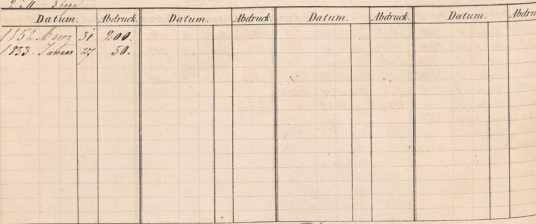 Datum. Abdruck Datum. Abdruck Datum. Abdruck. Datum. Abdruck
1852 März 31 200.
1853. Januar 27 50.